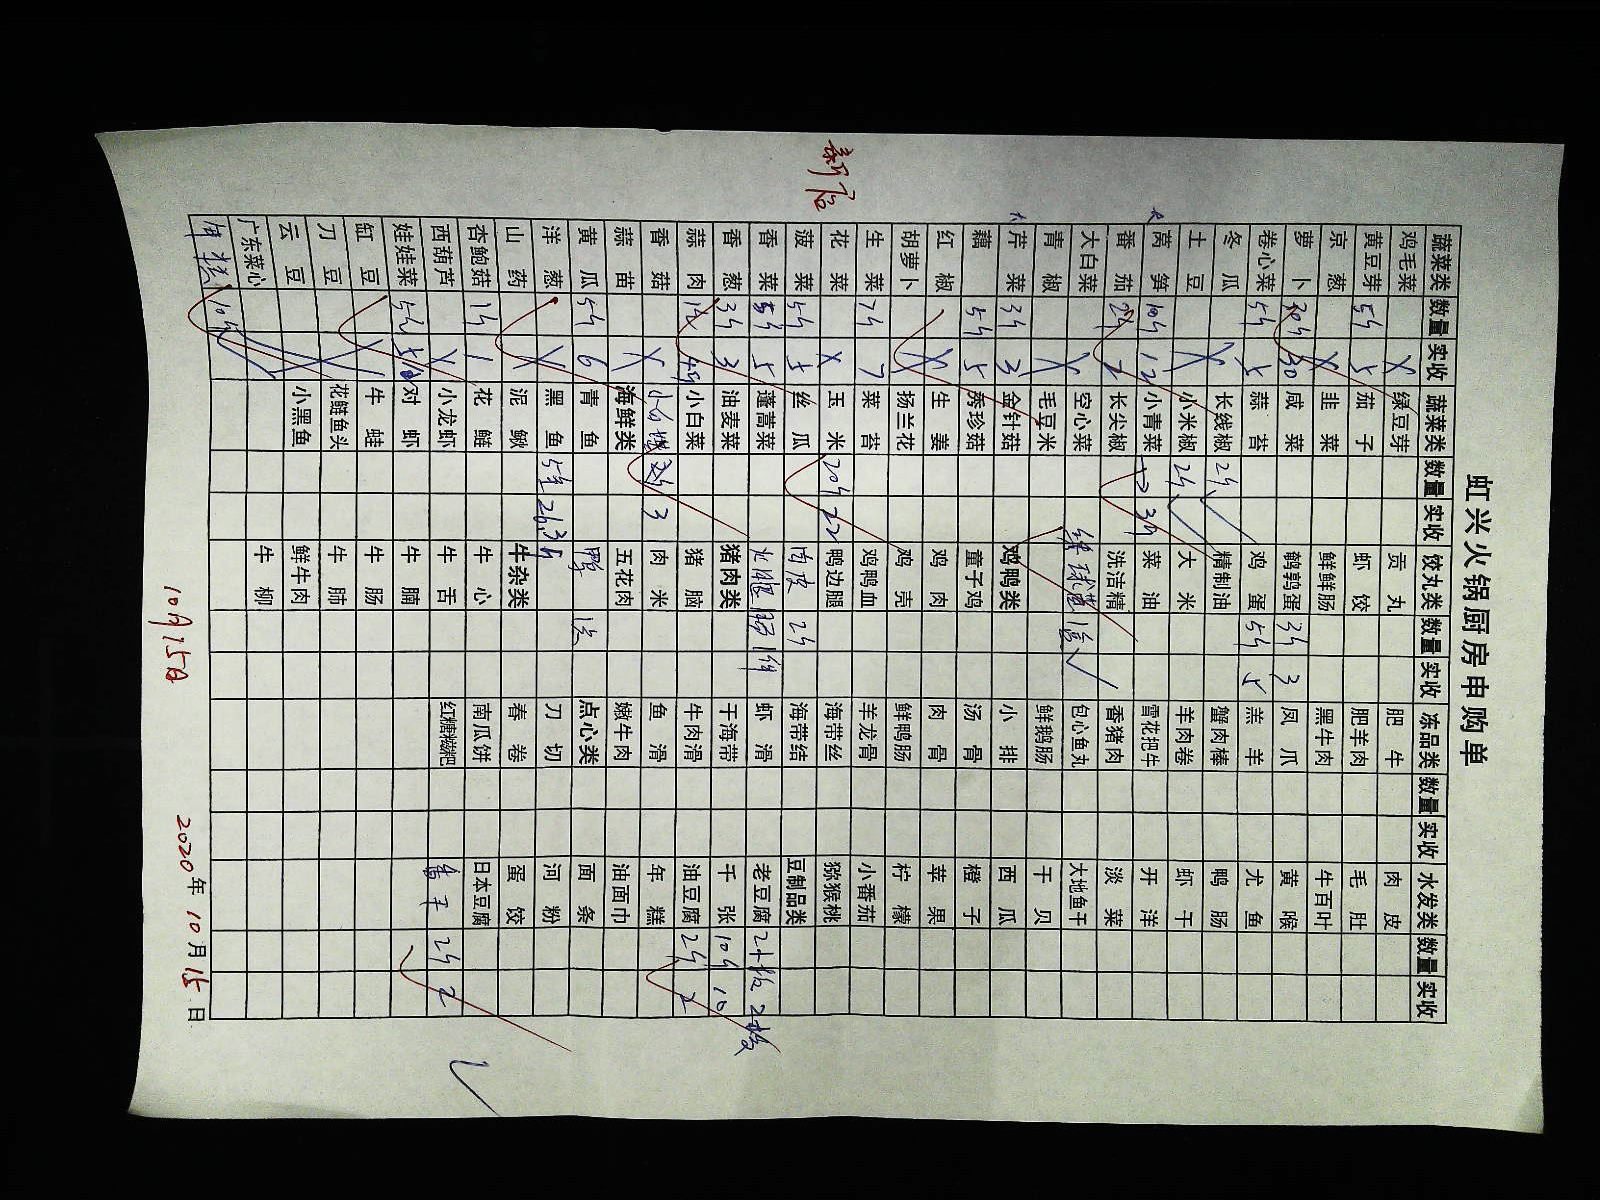 虹兴火锅厨房申购单
新店
蔬菜类 数量 实收 蔬菜类 数量 实收 饺丸类 数量 实收 冻品类 数量 实收 水发类 数量 实收
鸡毛菜 X 绿豆芽 贡丸 肥牛 肉皮
黄豆芽 5斤 5 茄子 虾饺 肥羊肉 毛肚
京葱 X 韭菜 鲜鲜肠 黑牛肉 牛百叶
萝卜 30斤 30 咸菜 鹌鹑蛋 3斤 3 凤爪 黄喉
卷心菜 5斤 5 蒜苔 鸡蛋 5斤 5 羔羊 尤鱼
冬瓜 X 长线椒 2斤 精制油 蟹肉棒 鸭肠
土豆 X 小米椒 2斤 大米 羊肉卷 虾干
莴笋 10斤 12 小青菜 菜油 雪花把牛 开洋
番茄 2斤 2 长尖椒 洗洁精 香猪肉 淡菜
大白菜 X 空心菜 包心鱼丸 大地鱼干
青椒 X 毛豆米 鲜鹅肠 干贝
芹菜 3斤 3 金针菇 鸡鸭类 小排 西瓜
藕 5斤 5 秀珍菇 童子鸡 汤骨 橙子
红椒 X 生姜 鸡肉 肉骨 苹果
胡萝卜 扬兰花 鸡壳 鲜鸭肠 柠檬
生菜 7斤 7 菜苔 鸡鸭血 羊龙骨 小番茄
花菜 X 玉米 20斤 22 鸭边腿 海带丝 猕猴桃
菠菜 5斤 5 丝瓜 肉皮 2斤 海带结 豆制品类
香菜 5斤 5 蓬蒿菜 火腿肠 1件 虾滑 老豆腐 2板 2板
香葱 3斤 3 油麦菜 猪肉类 干海带 千张 10斤 10
蒜肉 小白菜 猪脑 牛肉滑 油豆腐 2斤 2
香菇 X 3 肉米 鱼滑 年糕
蒜苗 X 海鲜类 五花肉 嫩牛肉 油面巾
黄瓜 5斤 6 青鱼 点心类 面条
洋葱 X 黑鱼 26.3斤 牛杂类 刀切 河粉
山药 泥鳅 牛杂类 春卷 蛋饺
杏鲍菇 1斤 1 花鲢 牛心 南瓜饼 日本豆腐
西葫芦 X 小龙虾 牛舌 红糖糍粑 香干 2斤 2
娃娃菜 对虾 牛腩
缸豆 X 牛蛙 牛肠
刀豆 X 花鲢鱼头 牛肺
云豆 小黑鱼 鲜牛肉
广东菜心 牛柳
10月15日 2020年10月15日